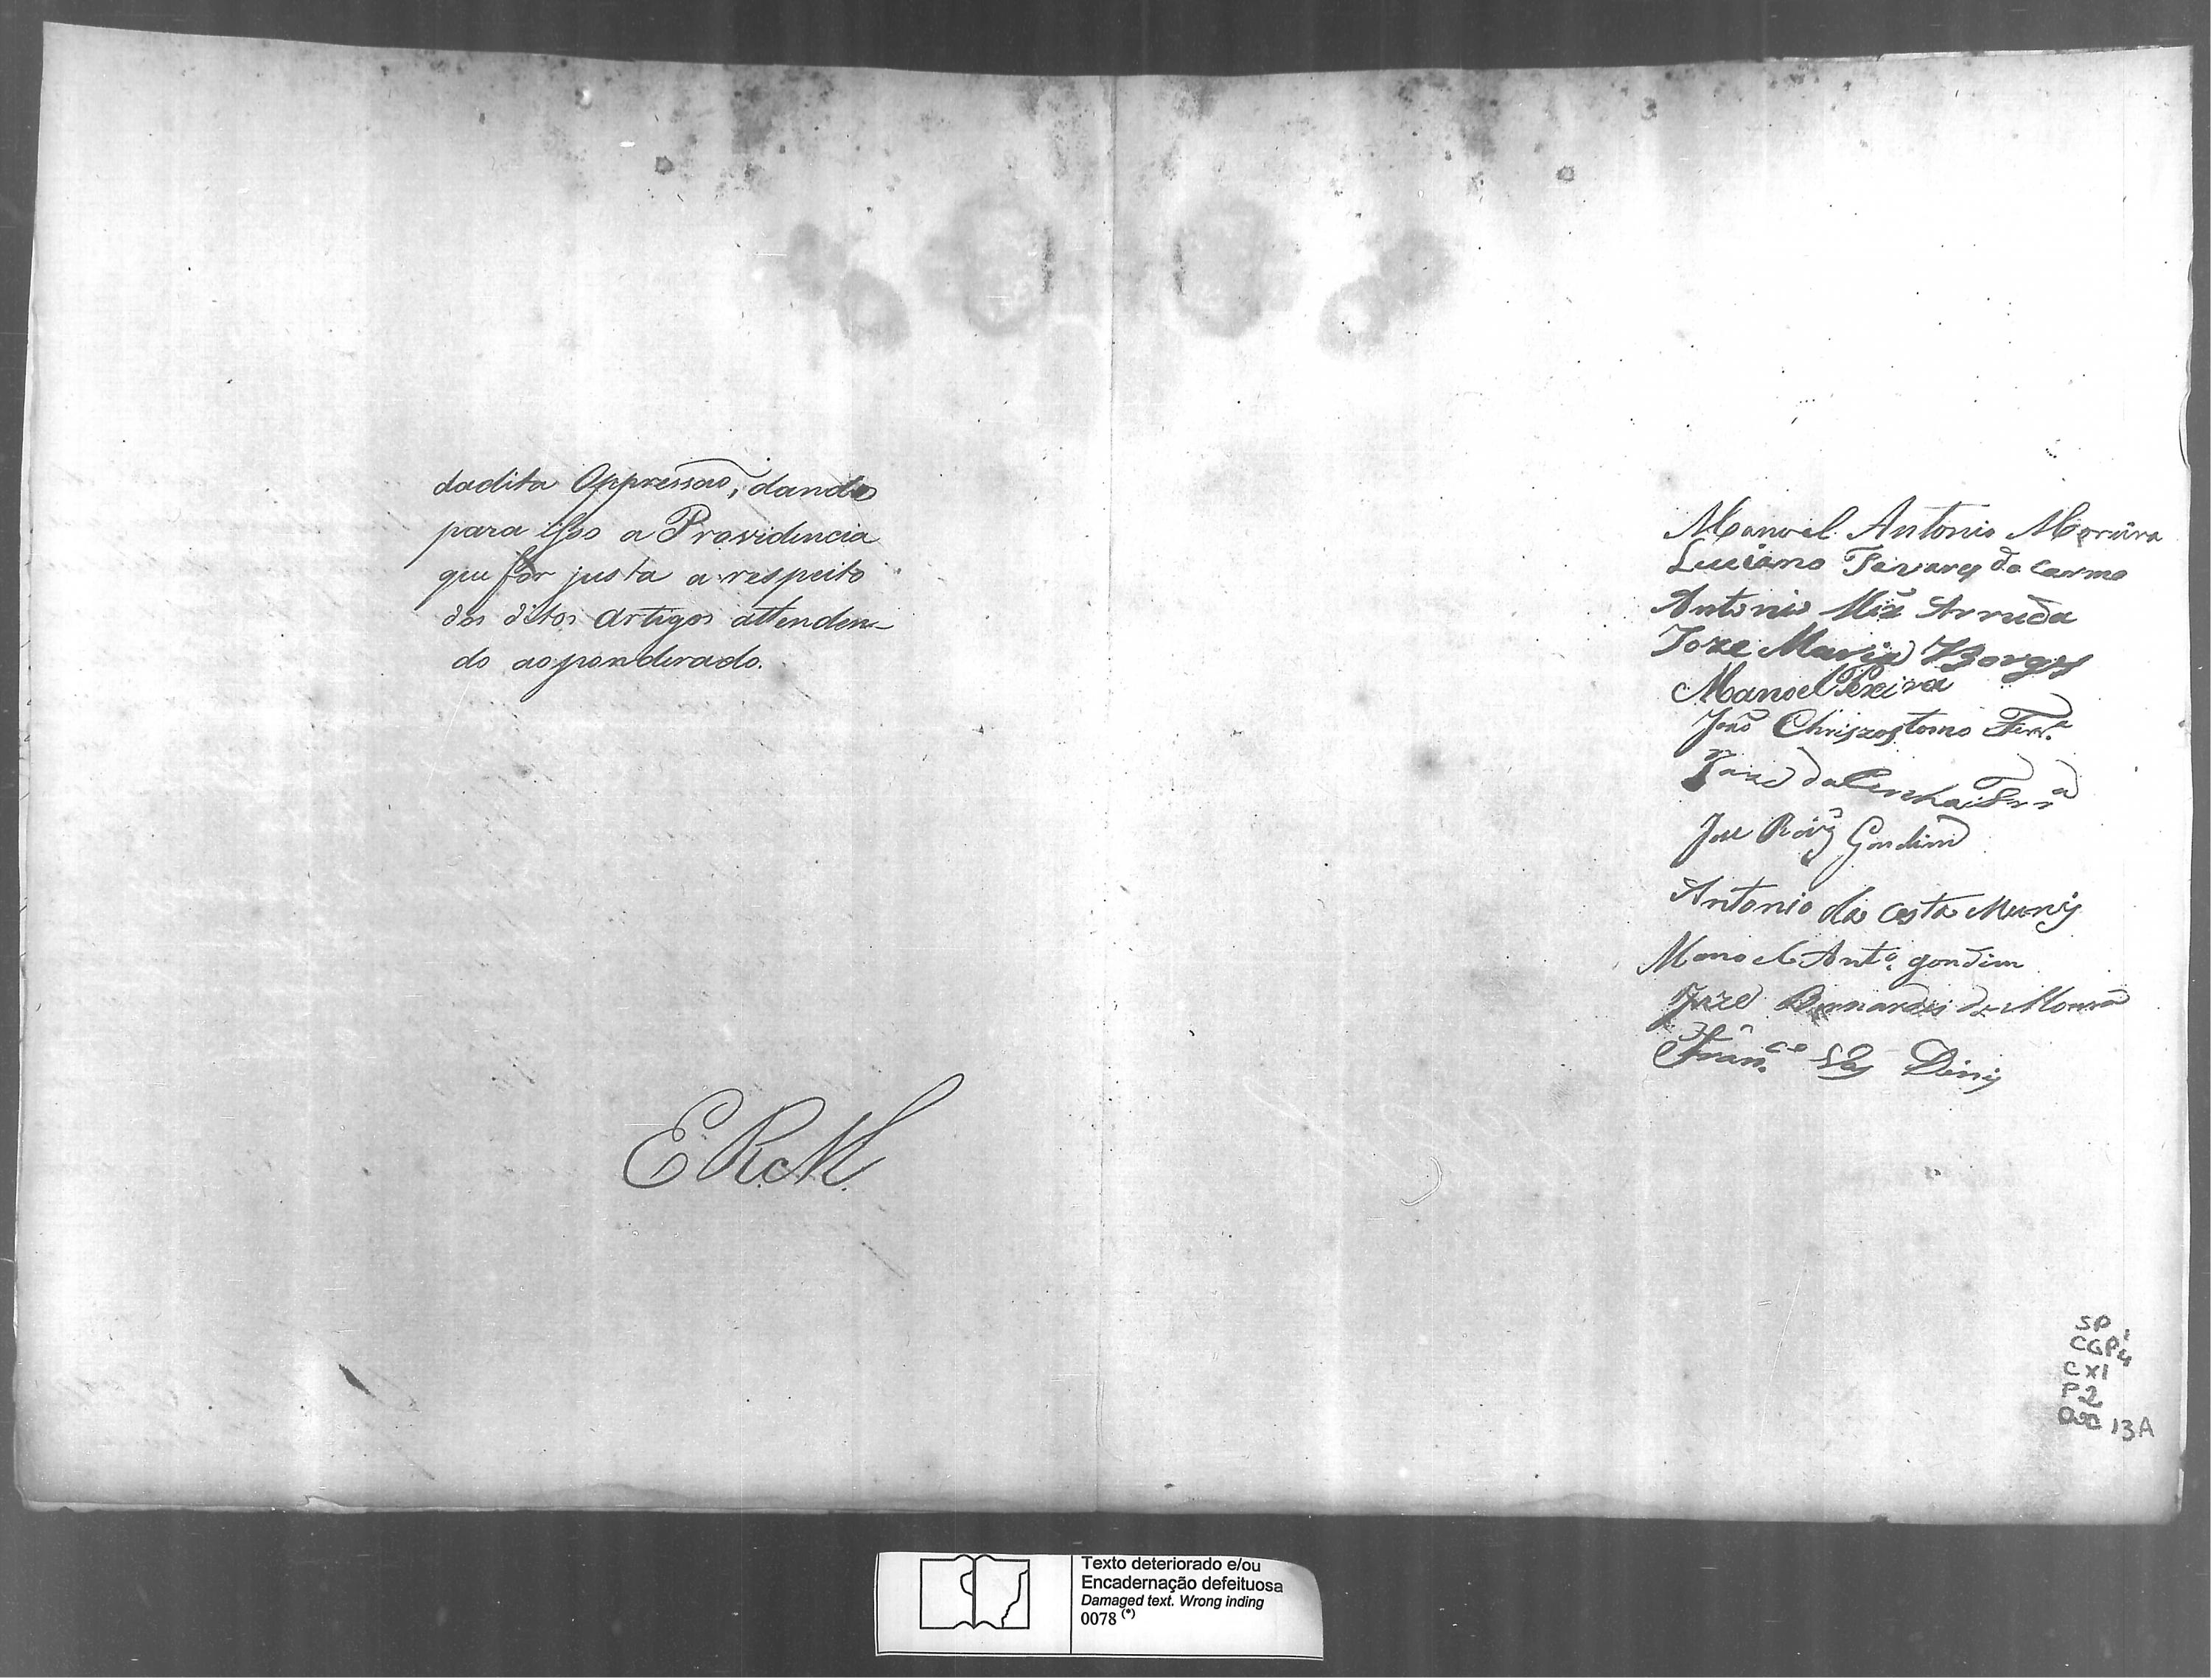 dadita Oppressaõ, dando
para isso a Providencia
que for justa a respeito
dos ditos Artigos attenden-
do ao ponderado.
ERM
Manoel Antonio Moreira
Luciano Tavares do Carmo
Antonio Arruda
Joze Maria Borges
Manoel Pereira
João Chrizostomo Ferr.ª
Joze da
Joze Roiz Gondim
Antonio da Costa Muniz
Manoel Ant.º gondim
Joze Bernardes de Moura
Fran.co Diniz
SP
CGP4
CX1
P2
Doc 13A
Texto deteriorado e/ou
Encadernação defeituosa
Damaged text. Wrong inding
0078 (*)